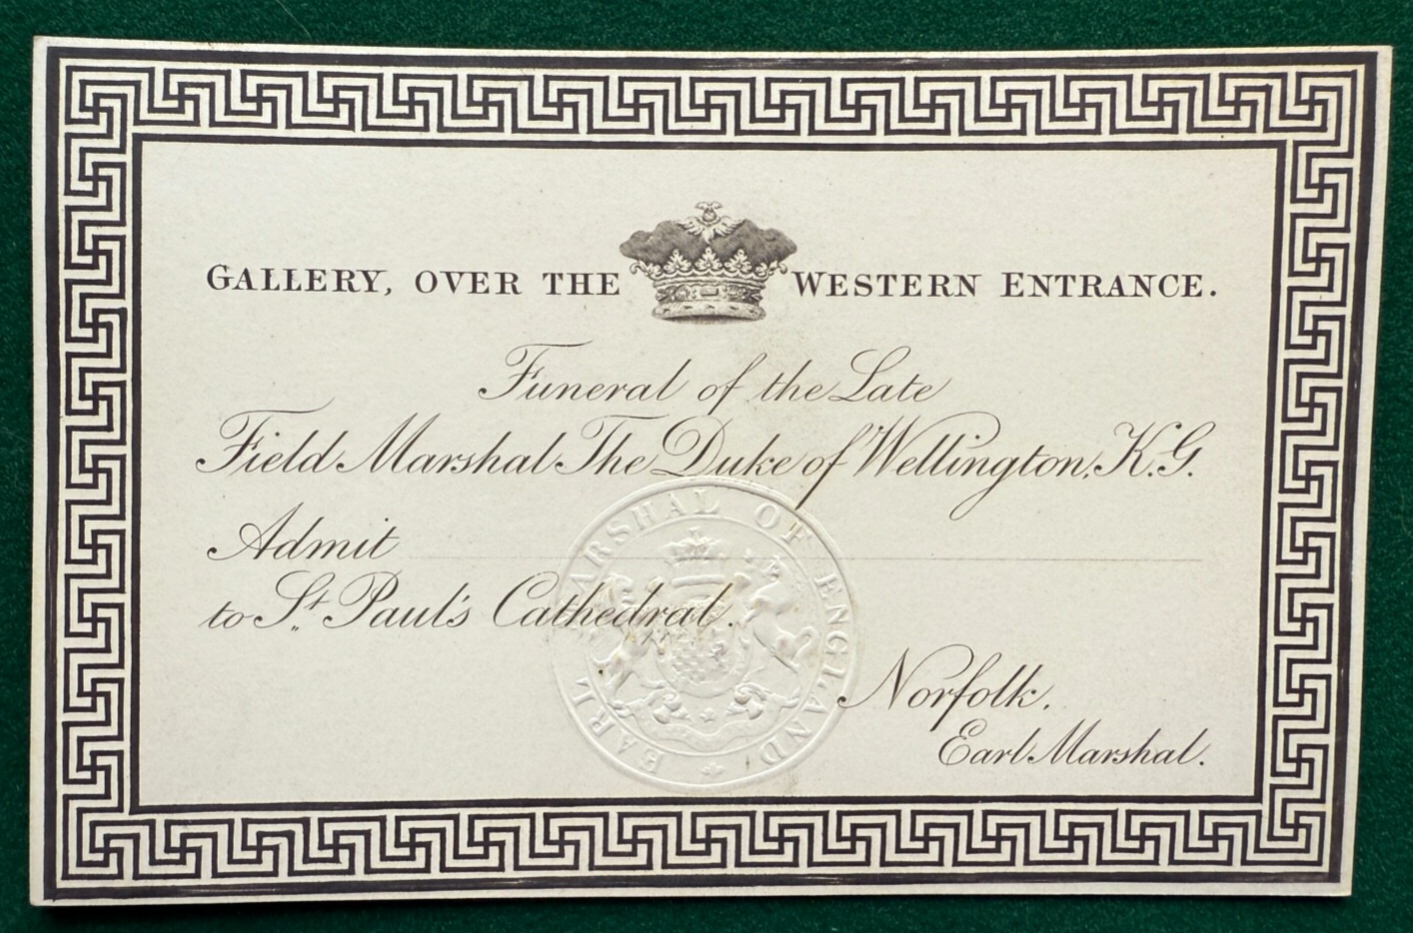 GALLERY, OVER THE WESTERN ENTRANCE.
Funeral of the Late
Field Marshal The Duke of Wellington, K.G.
Admit
to St. Paul's Cathedral.
EARL MARSHAL OF ENGLAND
Norfolk.
Earl Marshal.